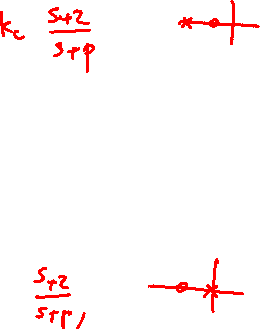 Kc s+z
s+p
s+z
s+p,